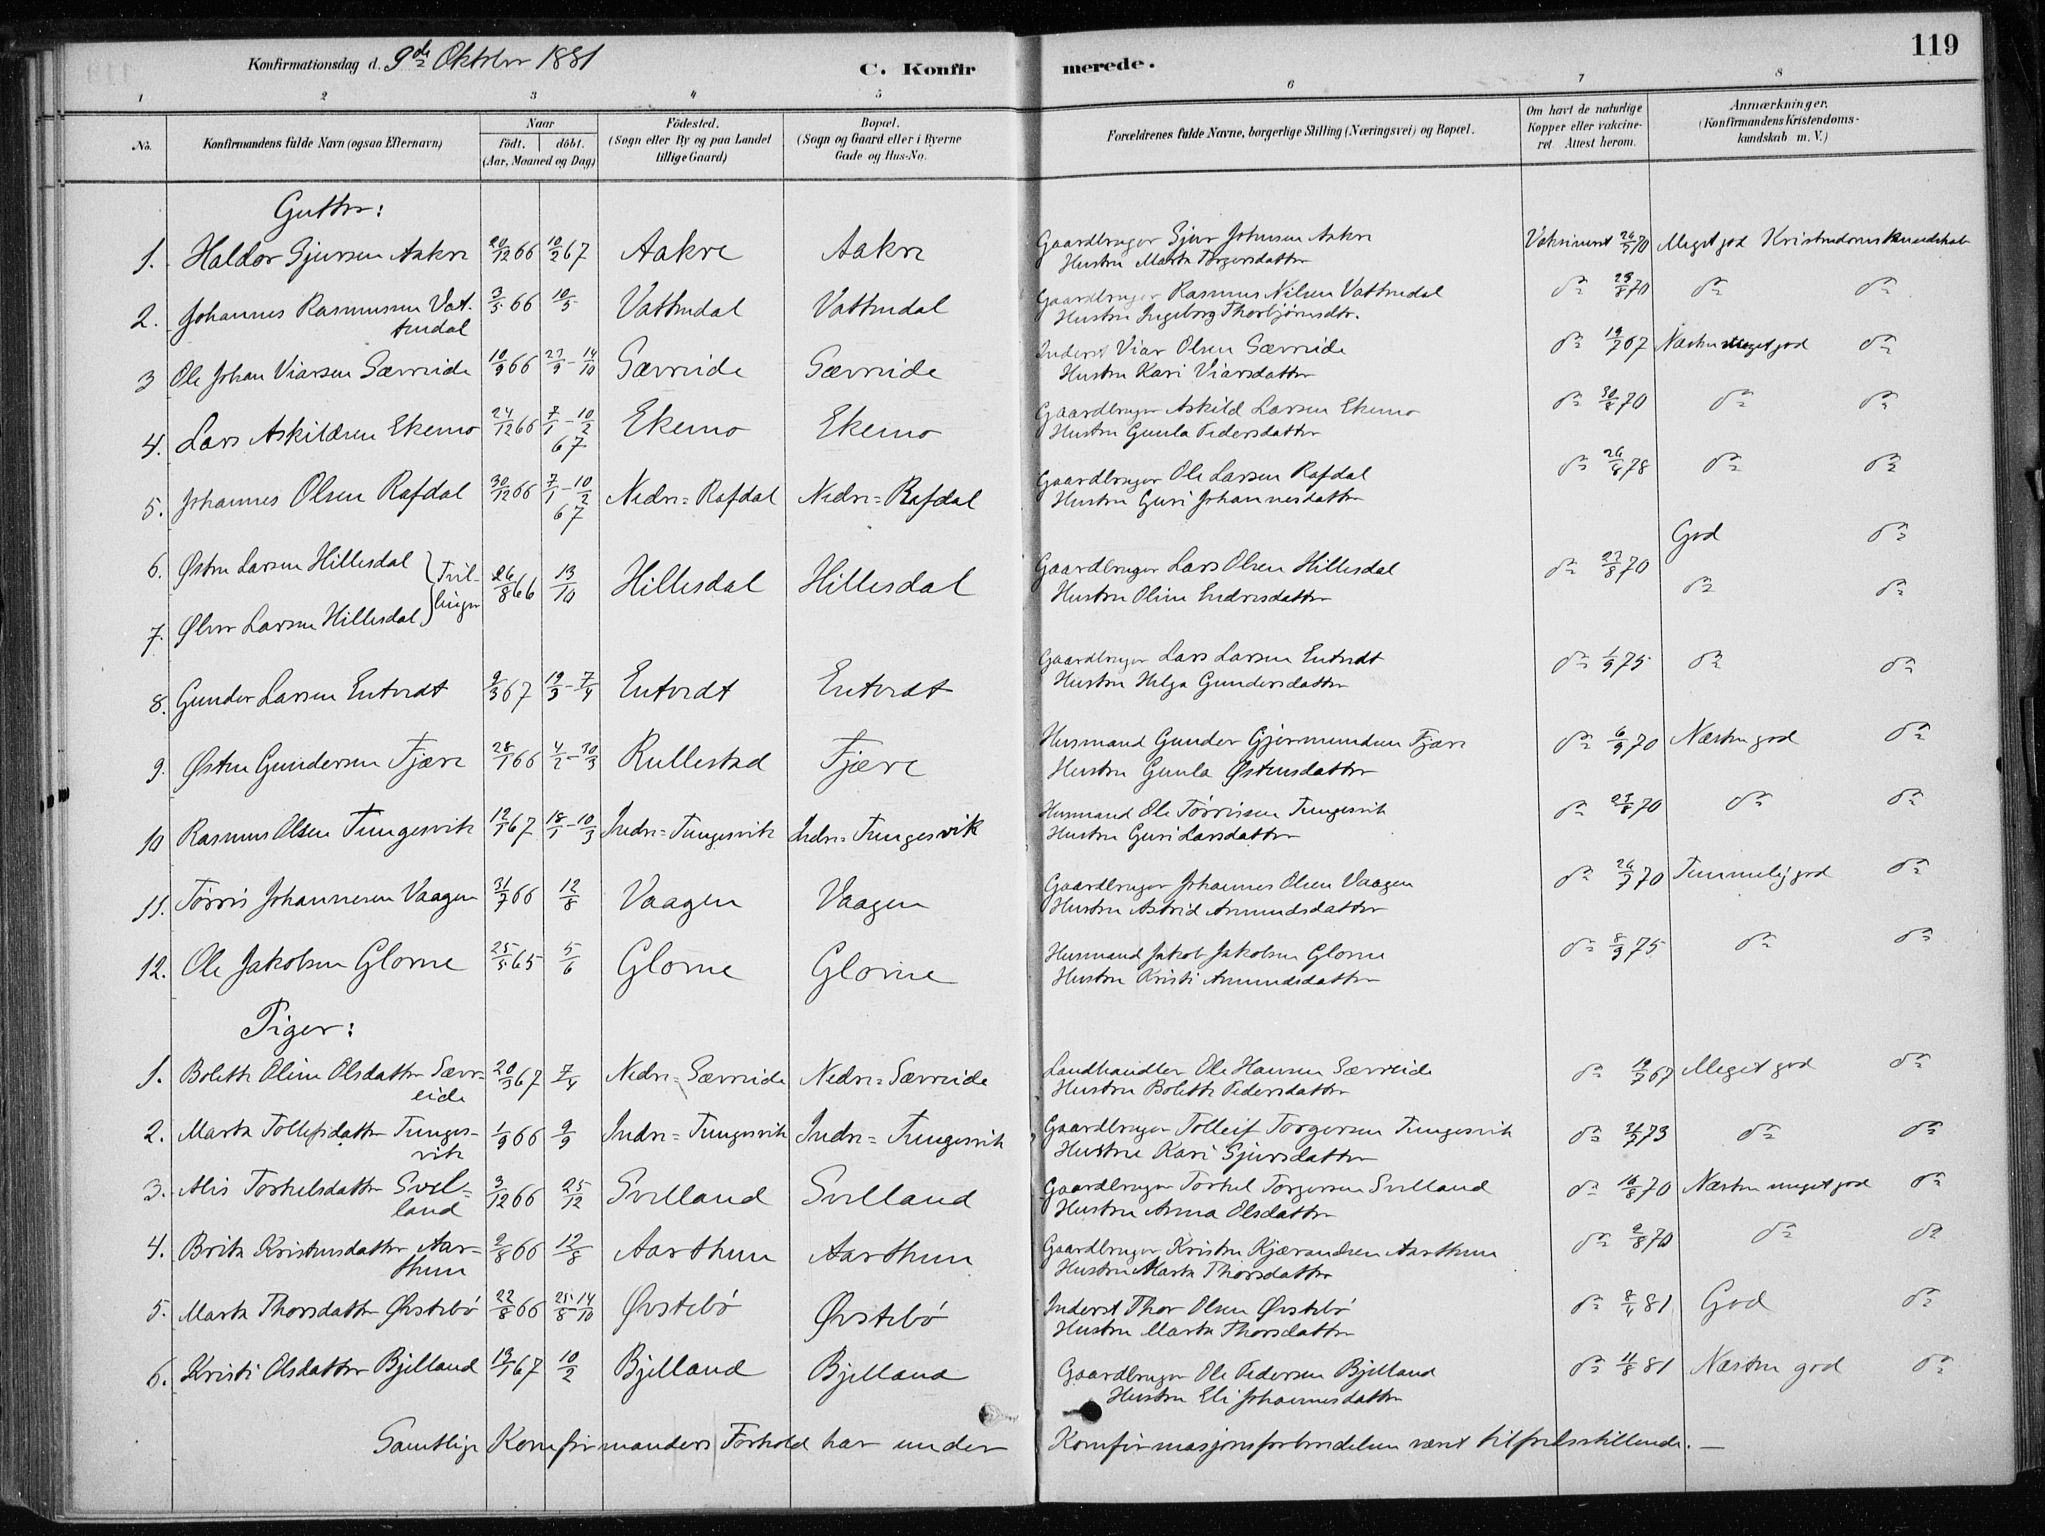 119
Konfirmationsdag d. 9de Oktober 1881 C. Konfirmerede.
1 2 3 4 5 6 7 8
No.
Konfirmandens fulde Navn (ogsaa Efternavn)
Naar
födt. döbt.
(Aar, Maaned og Dag)
Födested.
(Sogn eller By og paa Landet tillige Gaard)
Bopæl.
(Sogn og Gaard eller i Byerne Gade og Hus-No.
Forældrenes fulde Navne, borgerlige Stilling (Næringsvei) og Bopæl.
Om havt de naturlige Kopper eller vakcineret. Attest herom.
Anmærkninger.
(Konfirmandens Kristendomskundskab m. V.)
Gutter:
1. Haldor Sjursen Aakre 20/12 66 10/2 67 Aakre Aakre Gaardbruger Sjur Johnsen Aakre Vaksineret 26/7 70 Meget god Kristendomskundskab
Hustru Marta Torgersdatter
2. Johannes Rasmussen Vat- 3/5 66 10/5 Vattnedal Vattnedal Gaardbruger Rasmus Nilsen Vattnedal do 23/8 70 do do
tnedal Hustru Ingeborg Thorbjörnsdtr.
3 Ole Johan Viarsen Særreide 10/9 66 23/9 - 14/10 Særreide Særreide Inderst Viar Olsen Særreide do 19/7 67 Næsten meget god do
Hustru Kari Viarsdatter
4. Lars Askildsen Ekemo 24/12 66 7/1 - 10/2 67 Ekemo Ekemo Gaardbruger Askild Larsen Ekemo do 30/8 70 do do
Hustru Gunla Pedersdatter
5. Johannes Olsen Rafdal 30/12 66 7/1 - 10/2 67 Nedre=Rafdal Nedre=Rafdal Gaardbruger Ole Larsen Rafdal do 26/4 78 do do
Hustru Guri Johannesdatter
6. Østen Larsen Hillesdal } Tvil- 26/8 66 13/10 Hillesdal Hillesdal Gaardbruger Lars Olsen Hillesdal do 23/8 70 God do
7. Ølver Larsen Hillesdal } linger Hustru Oline Endresdatter do do
8. Gunder Larsen Entvedt 9/3 67 19/3 - 7/4 Entvedt Entvedt Gaardbruger Lars Larsen Entvedt do 1/9 75 do do
Hustru Helga Gundersdatter
9. Østen Gundersen Fjære 28/1 66 4/2 - 30/3 Rullestad Fjære Husmand Gunder Gjermundsen Fjære do 6/9 70 Næsten god do
Hustru Gunla Østensdatter
10 Rasmus Olsen Tungesvik 12/1 67 18/1 - 10/3 Indre=Tungesvik Indre=Tungesvik Husmand Ole Törrisen Tungesvik do 23/8 70 do do
Hustru Guri Larsdatter
11. Törris Johannesen Vaagen 31/7 66 12/8 Vaagen Vaagen Gaardbruger Johannes Olsen Vaagen do 26/7 70 Temmelig god do
Hustru Astrid Amundsdatter
12. Ole Jakobsen Glorne 25/5 65 5/6 Glorne Glorne Husmand Jakob Jakobsen Glorne do 8/9 75 do do
Hustru Kristi Amundsdatter
Piger:
1. Bolette Oline Olsdatter Særr- 20/3 67 7/4 Nedre=Særreide Nedre=Særreide Landhandler Ole Hansen Særreide do 19/7 67 Meget god do
eide Hustru Bolette Pedersdatter
2. Marta Tollefsdatter Tunges- 1/9 66 9/9 Indre=Tungesvik Indre=Tungesvik Gaardbruger Tolleif Torgersen Tungesvik do 73 do do
vik Hustru Kari Sjursdatter
3. Alis Torkelsdatter Svel- 3/12 66 25/12 Svelland Svelland Gaardbruger Torkel Torgersen Svelland do 16/8 70 Næsten meget god do
land Hustru Anna Olsdatter
4. Brita Kristensdatter Aar- 2/8 66 12/8 Aarthun Aarthun Gaardbruger Kristen Kjærandsen Aarthun do 9/8 70 do do
thun Hustru Marta Thorsdatter
5. Marta Thorsdatter Øvstebö 22/8 66 25/8 - 14/10 Øvstebö Øvstebö Inderst Thor Olsen Øvstebö do 8/4 81 God do
Hustru Marta Thorsdatter
6. Kristi Olsdatter Bjelland 13/1 67 10/2 Bjelland Bjelland Gaardbruger Ole Pedersen Bjelland do 4/8 81 Næsten god do
Hustru Eli Johannesdatter
Samtlige Konfirmanders Forhold har under Konfirmasjonsforberedelsen været tilfredsstillende. —